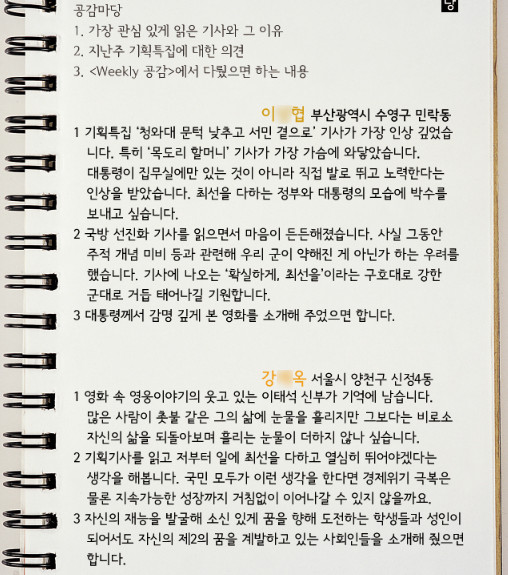 당
공감마당
1. 가장 관심 있게 읽은 기사와 그 이유
2. 지난주 기획특집에 대한 의견
3. <Weekly 공감>에서 다뤘으면 하는 내용
이 협 부산광역시 수영구 민락동
1 기획특집 ‘청와대 문턱 낮추고 서민 곁으로’ 기사가 가장 인상 깊었습
니다. 특히 ‘목도리 할머니’ 기사가 가장 가슴에 와닿았습니다.
대통령이 집무실에만 있는 것이 아니라 직접 발로 뛰고 노력한다는
인상을 받았습니다. 최선을 다하는 정부와 대통령의 모습에 박수를
보내고 싶습니다.
2 국방 선진화 기사를 읽으면서 마음이 든든해졌습니다. 사실 그동안
주적 개념 미비 등과 관련해 우리 군이 약해진 게 아닌가 하는 우려를
했습니다. 기사에 나오는 ‘확실하게, 최선을’이라는 구호대로 강한
군대로 거듭 태어나길 기원합니다.
3 대통령께서 감명 깊게 본 영화를 소개해 주었으면 합니다.
강 옥 서울시 양천구 신정4동
1 영화 속 영웅이야기의 웃고 있는 이태석 신부가 기억에 남습니다.
많은 사람이 촛불 같은 그의 삶에 눈물을 흘리지만 그보다는 비로소
자신의 삶을 되돌아보며 흘리는 눈물이 더하지 않나 싶습니다.
2 기획기사를 읽고 저부터 일에 최선을 다하고 열심히 뛰어야겠다는
생각을 해봅니다. 국민 모두가 이런 생각을 한다면 경제위기 극복은
물론 지속가능한 성장까지 거침없이 이어나갈 수 있지 않을까요.
3 자신의 재능을 발굴해 소신 있게 꿈을 향해 도전하는 학생들과 성인이
되어서도 자신의 제2의 꿈을 계발하고 있는 사회인들을 소개해 줬으면
합니다.